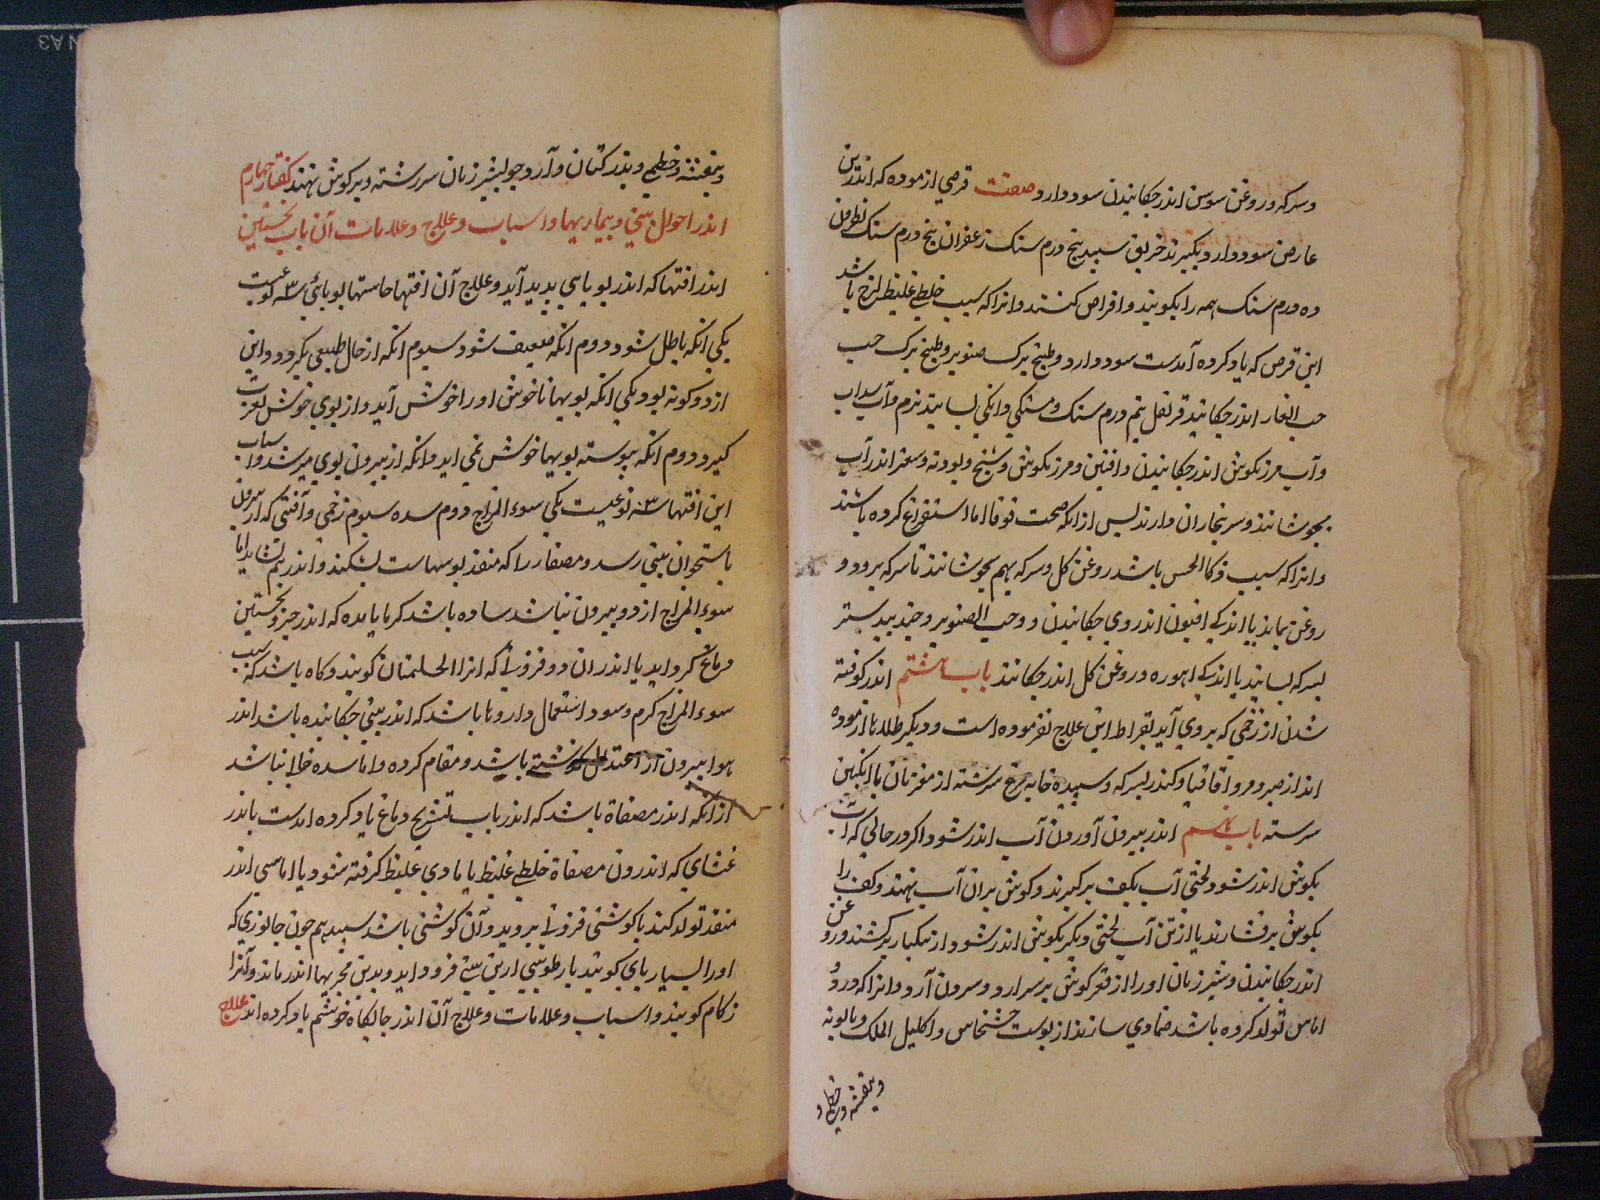 وسرکه وروغن سوسن اندر چکانیدن سود دارد صفت قرصی ازموده که اندرین
عارض سود دارد بگیرند خربق سپید پنج درم سنک زعفران پنج درم سنک نطرون
ده درم سنک همه را بکوبند و اقراص کنند وانرا که سبب خلطی غلیظ لزج باشد
این قرص که یاد کرده آمدست سود دارد وطبیخ برک صنوبر وطبیخ برک حب
حب الغار اندر چکانند قرنفل نیم درم سنک ومشکی دانکی بسایند نرم وآب سداب
وآب مرزنکوش اندر چکانیدن وافتین ومرزنکوش وشیح وپودنه وسعتر اندر آب
بجوشانند وسر بنخاران دارند پس ازانکه صحت قوقایا استفراغ کرده باشند
وانرا که سبب ذکاالحس باشد روغن کل وسرکه بهم بجوشانند تا سرکه برود و
روغن بماند یا اندکی افیون اندر وی چکانیدن و وحب الصنوبر وجندبیدستر
بسرکه بسایند یا اندکی بوره وروغن کل اندر چکانند باب هشتم اندر کوفته
شدن از زخمی که بروی آید بقراط این علاج نفرموده است و دیکر طلاها ازموده
اند از صبر ومر واقاقیا وکندر بسرکه وسپیده خایه مرغ سرشته از مغز نان باانکبین
سرسته باب نهم اندر بیرون آوردن آب اندر شود اکر در حالی که آب
بکوش اندر شود لختی آب بکف برکیرند وکوش بران آب نهند وکف را
بکوش برفشارند یا ازتن آب لختی دیکر بکوش اندر شود واز یکبار برکشند وروغن
اندر چکانیدن وشیر زنان اورا از قعر کوش برسر ارد وبیرون آرد وانرا که درو
اماس تولد کرده باشد ضمادی سازند از پوست خشخاش واکلیل الملک وبابونه
وبنفشه وخطمی و
وبنفشه وخطمی وبذر کتان وآرد جو بشیر زنان سرشته وبرکوش نهند کفتار چهارم
اندر احوال بینی وبیماریها واسباب وعلاج وعلامات آن باب نخستین
اندر افتها که اندر بویایی پدید آید وعلاج آن افتها حاستها بویائی سه کونه است
یکی انکه باطل شود دوم انکه ضعیف شود سیوم انکه از حال طبیعی بکردد واین
از دو کونه بود یکی انکه بویها ناخوش اورا خوش آید واز بوی خوش نفرت
کیرد دوم انکه پیوسته بویها خوش نمی اید وانکه از بیرون بوی میرسد واسباب
این افتها سه نوعیست یکی سوء المزاج دوم سده سیوم زخمی وآفتی که از بیرون
باستخوان بینی رسد ومصفار را که منفذ بویهاست بشکند واندر هم نشاند اما
سوء المزاج از دو بیرون نباشد ساده باشد کرم یا ماده که اندر جزو نخستین
دماغ کرد اید یا اندران دو فزونی که انرا الحلمتان کویند وکاه باشد که سبب
سوء المزاج کرم وسود استعمال داروها باشد که اندر بینی چکانیده باشد اندر
هوا بیرون از اعتدال کذشته باشد ومقام کرده واما سده خالی نباشد
ازانکه اندر مصفاة باشد که اندر باب تشریح دماغ یاد کرده امدست یا اندر
غشای که اندرون مصفاة خلطی غلیظ یا بادی غلیظ کرفته شود یا اماسی اندر
منفذ تولد کند یا کوشتی فزونی بروید وآن کوشتی باشد سپید هم چون جانوری که
اورا بسیار پای کویند یا رطوبتی ازین بینی فرود اید وبدین مجریها اندر ماند وآنرا
زکام کویند واسباب وعلامات وعلاج آن اندر جایکاه خویشم یاد کرده اند علاج